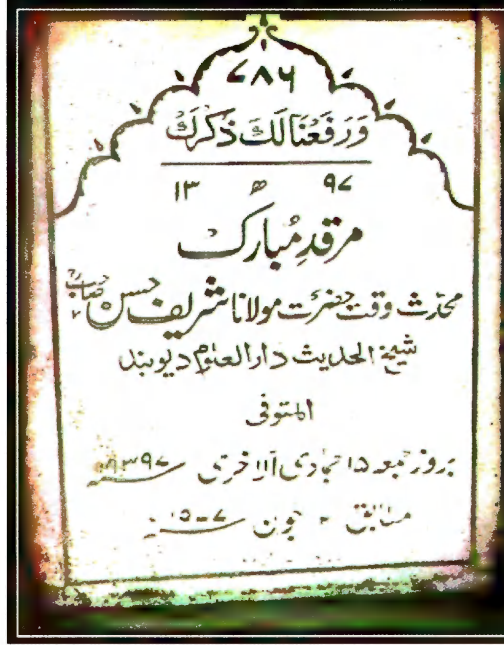 ۷۸۶
وَرَفَعْنَا لَكَ ذِكْرَكَ
۱۳ ھ ۹۷
مرقدِ مُبارک
محدّث وقت حضرت مولانا شریف حسن صاحبؒ
شیخ الحدیث دارالعلوم دیوبند
المتوفی
بروز جمعہ ۱۵ جمادی الاخریٰ ۱۳۹۷ھ
مطابق جون